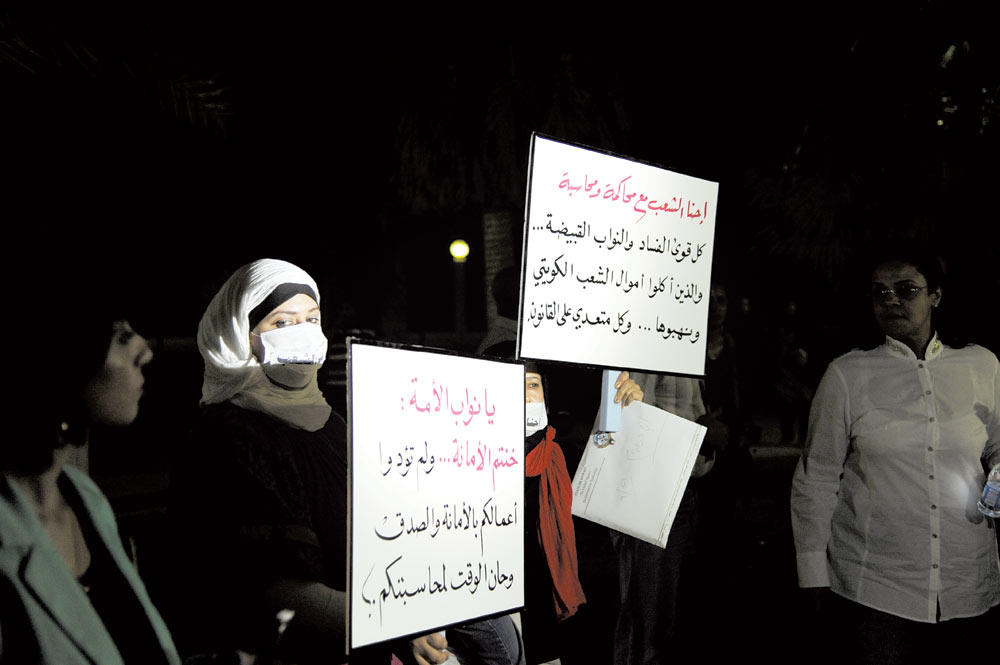 إحنا الشعب مع محاكمة ومحاسبة
كل قوى الفساد والنواب القبيضة...
والذين أكلوا أموال الشعب الكويتي
ونهبوها... وكل متعدي على القانون.
يا نواب الأمة :
خنتم الأمانة... ولم تؤدوا
أعمالكم بالأمانة والصدق
وحان الوقت لمحاسبتكم..؟